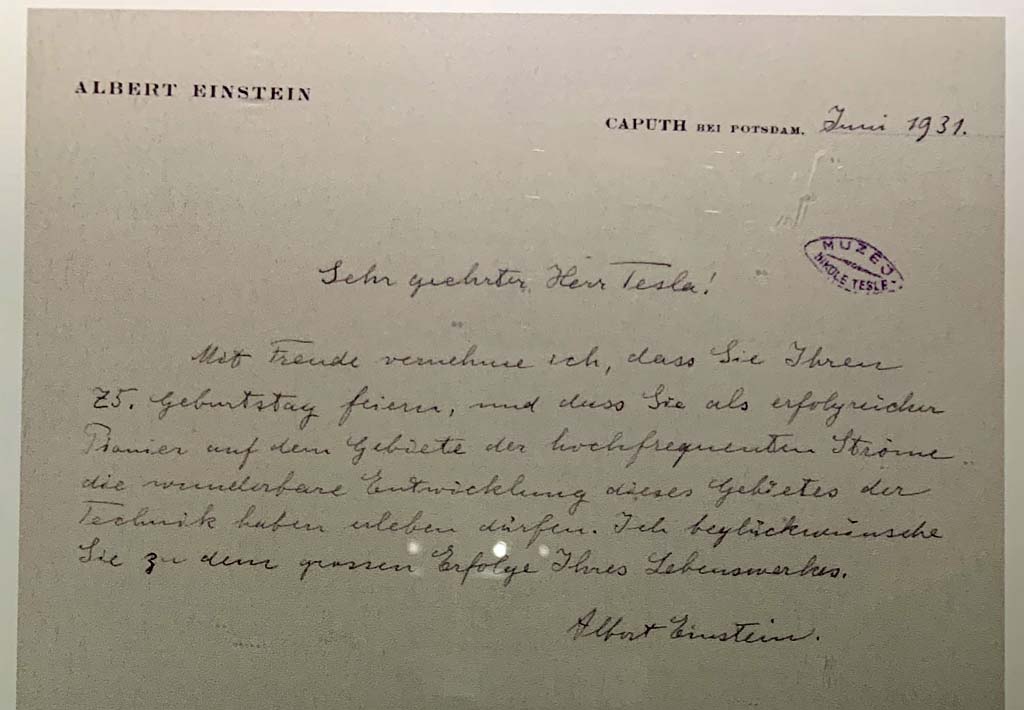 ALBERT EINSTEIN
CAPUTH BEI POTSDAM, Juni 1931.
MUZEJ
NIKOLE TESLE
Sehr geehrter Herr Tesla!
Mit Freude vernehme ich, dass Sie Ihren
75. Geburtstag feiern, und dass Sie als erfolgreicher
Pionier auf dem Gebiete der hochfrequenten Ströme
die wunderbare Entwicklung dieses Gebietes der
Technik haben erleben dürfen. Ich beglückwünsche
Sie zu dem grossen Erfolge Ihres Lebenswerkes.
Albert Einstein.